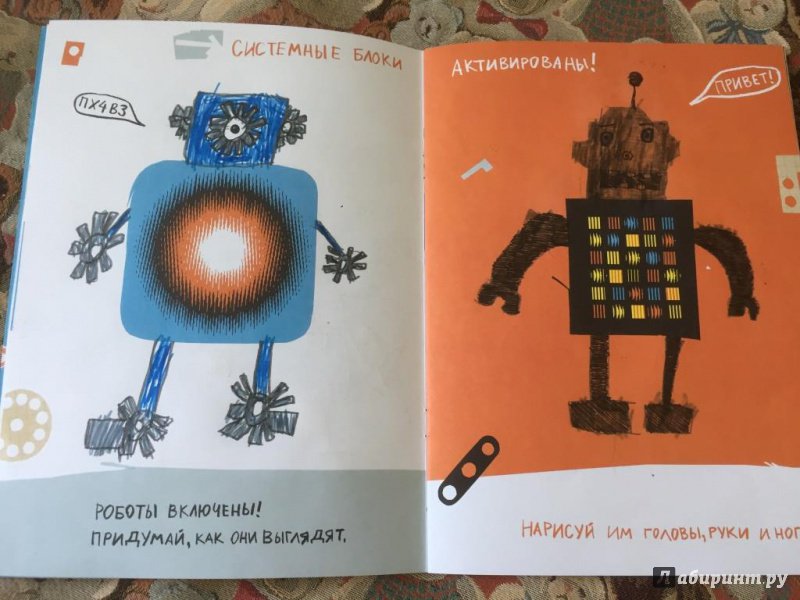 СИСТЕМНЫЕ БЛОКИ
АКТИВИРОВАНЫ!
ПХ4ВЗ
ПРИВЕТ!
РОБОТЫ ВКЛЮЧЕНЫ!
ПРИДУМАЙ, КАК ОНИ ВЫГЛЯДЯТ.
НАРИСУЙ ИМ ГОЛОВЫ, РУКИ И НОГ
Лабиринт.ру